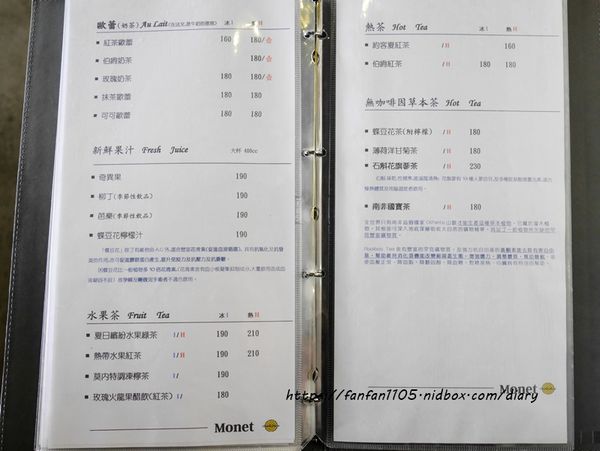 歐蕾(奶茶) Au Lait 冰I 熱H
紅茶歐蕾 160 180/壺
伯爵奶茶 180/壺
玫瑰奶茶 180 180/壺
抹茶歐蕾 180 180
可可歐蕾 180 180
新鮮果汁 Fresh Juice 大杯 480cc
奇異果 190
柳丁(季節性飲品) 190
芭樂(季節性飲品) 190
蝶豆花檸檬汁 190
水果茶 Fruit Tea 冰I 熱H
夏日繽紛水果綠茶 I/H 190 210
熱帶水果紅茶 I/H 190 210
莫內特調凍檸茶 I/ 190
玫瑰火龍果醋飲(紅茶) I/ 180
Monet
熱茶 Hot Tea 冰I 熱H
約客夏紅茶 /H 160
伯爵紅茶 /H 180 180
無咖啡因草本茶 Hot Tea
蝶豆花茶(附檸檬) /H 180
薄荷洋甘菊茶 /H 180
石斛花旗蔘茶 /H 230
南非國寶茶 /H 180
Monet
https://fanfan1105.nidbox.com/diary